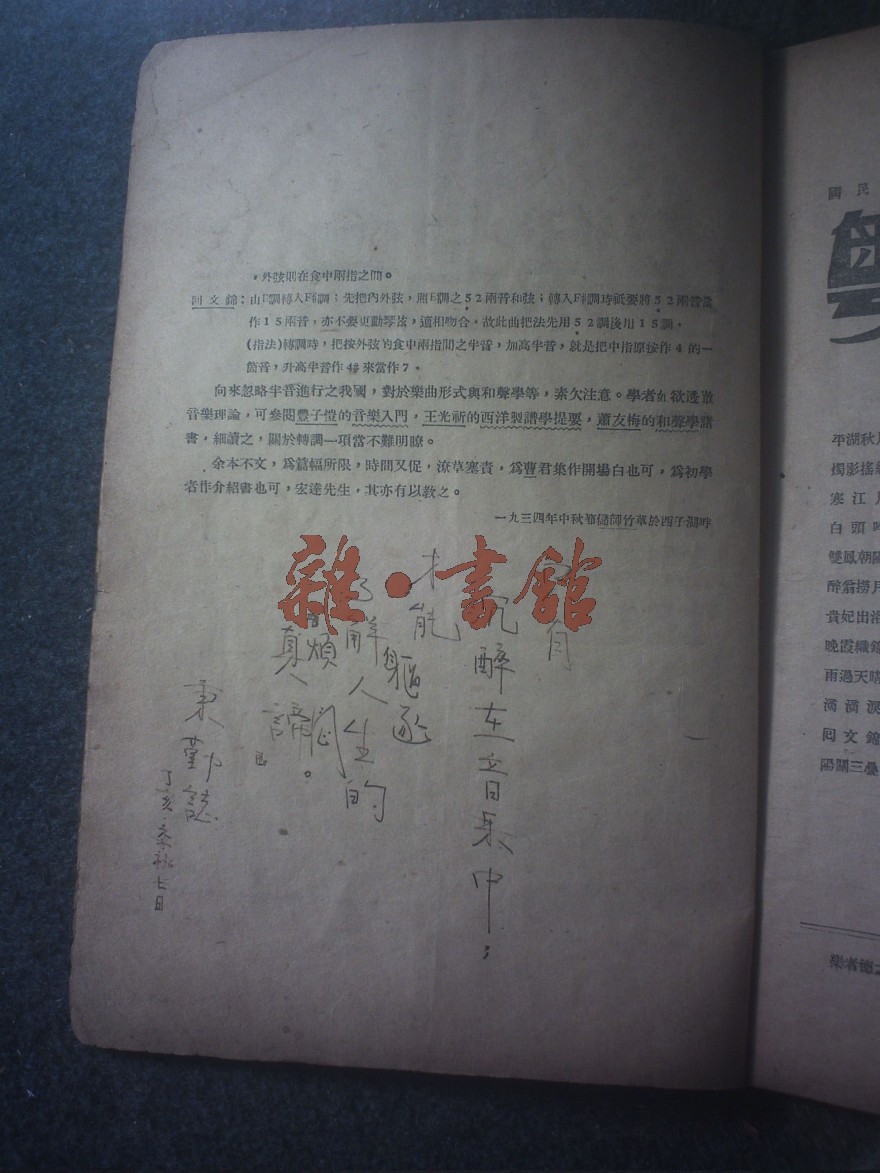 ，外弦則在食中兩指之間。
回文錦：由F調轉入F#調；先把內外弦，照F調之52兩音和弦；轉入F#調時祗要將52兩音當
作15兩音，亦不要更動琴弦，適相吻合。故此曲把法先用52調後用15調。
(指法)轉調時，把按外弦的食中兩指間之半音，加高半音，就是把中指原按作4的一
箇音，升高半音作4#來當作7。
向來忽略半音進行之我國，對於樂曲形式與和聲學等，素欠注意。學者如欲透澈
音樂理論，可參閱豐子愷的音樂入門，王光祈的西洋製譜學提要，蕭友梅的和聲學諸
書，細讀之，關於轉調一項當不難明瞭。
余本不文，為篇幅所限，時間又促，潦草塞責，為曹君集作開場白也可，為初學
者作介紹書也可，宏達先生，其亦有以教之。
一九三四年中秋節儲師竹草於西子湖畔
只有
沉醉在音樂中；
才能驅逐
煩悶
了解人生的
真諦。
秉勤誌
丁亥.桑秋七日
雜·書館
國民
粵
平湖秋月
燭影搖紅
寒江月
白頭吟
雙鳳朝陽
醉翁撈月
貴妃出浴
晚霞織錦
雨過天晴
滴滴淚
回文錦
陽關三疊
樂者德之